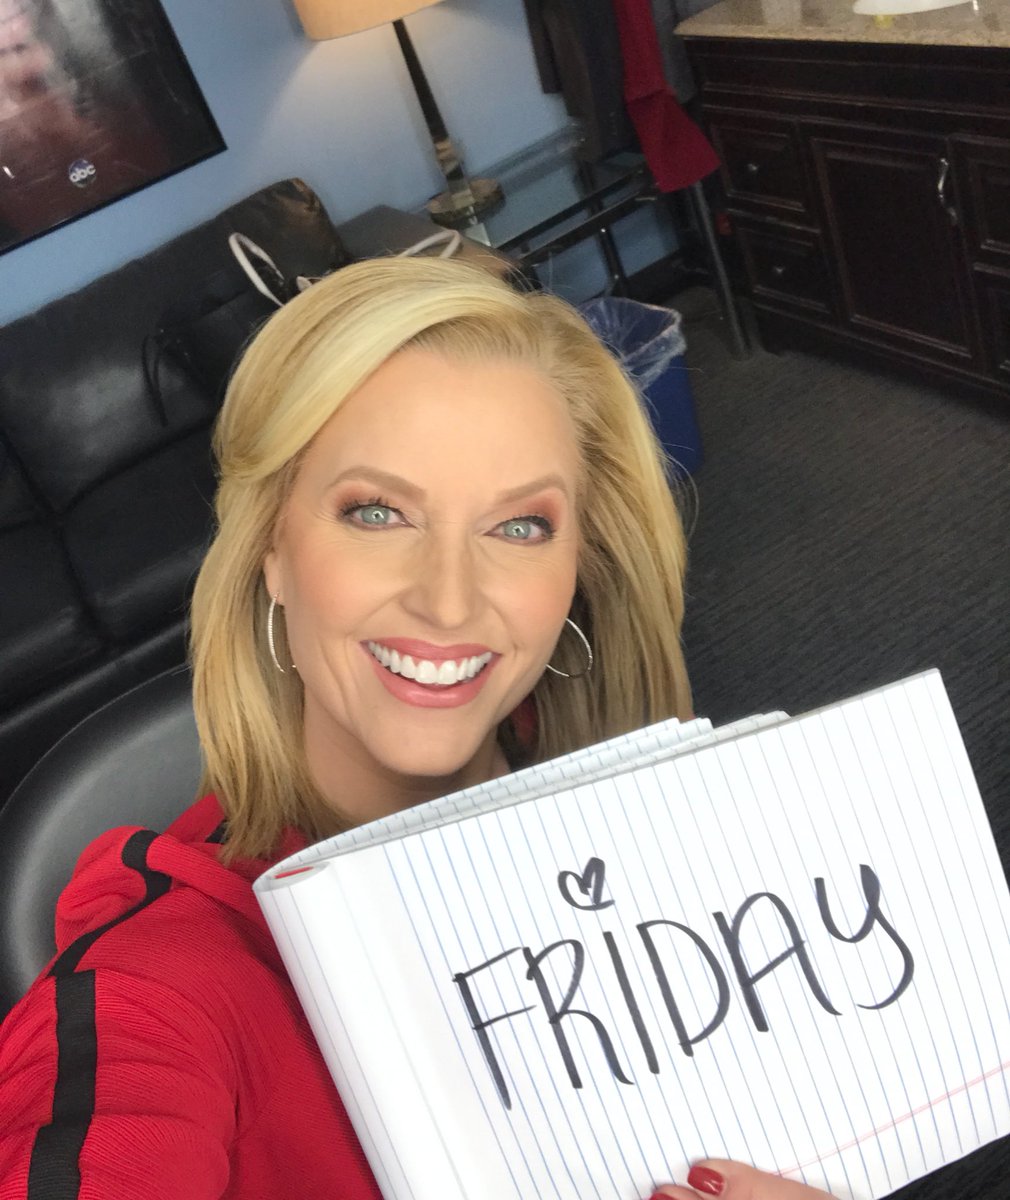 abc
FRiDAY